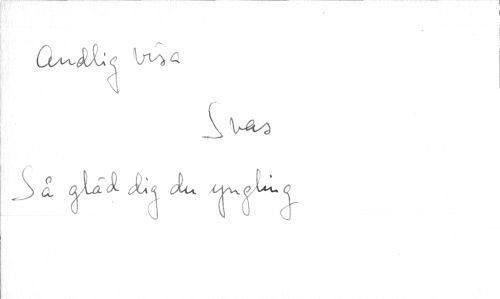 Andlig visa
Svas
Så gläd dig du yngling